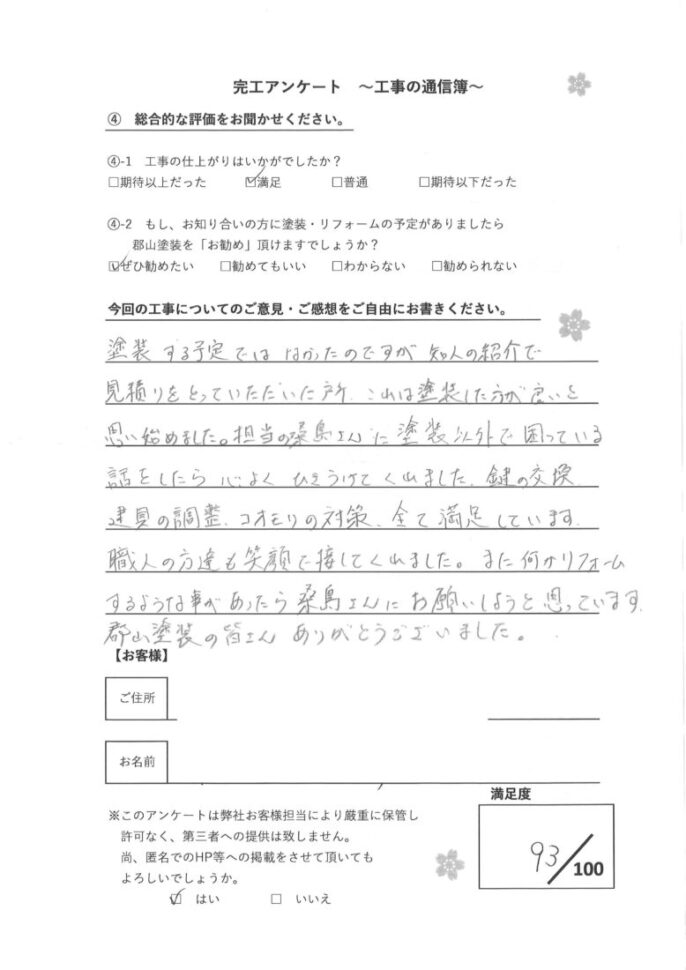 完工アンケート　～工事の通信簿～
④　総合的な評価をお聞かせください。
④-1　工事の仕上がりはいかがでしたか？
□期待以上だった　☑満足　□普通　□期待以下だった
④-2　もし、お知り合いの方に塗装・リフォームの予定がありましたら
郡山塗装を「お勧め」頂けますでしょうか？
☑ぜひ勧めたい　□勧めてもいい　□わからない　□勧められない
今回の工事についてのご意見・ご感想をご自由にお書きください。
塗装する予定ではなかったのですが知人の紹介で
見積りをとっていただいた所、これは塗装した方が良いと
思い始めました。担当の桑島さんに塗装以外で困っている
話をしたら心よくひきうけてくれました。鍵の交換、
建具の調整、コオモリの対策、全て満足しています。
職人の方達も笑顔で接してくれました。また何かリフォーム
するような事があったら桑島さんにお願いしようと思っています。
郡山塗装の皆さんありがとうございました。
【お客様】
ご住所
お名前
満足度
93/100
※このアンケートは弊社お客様担当により厳重に保管し
許可なく、第三者への提供は致しません。
尚、匿名でのHP等への掲載をさせて頂いても
よろしいでしょうか。
☑　はい　□　いいえ